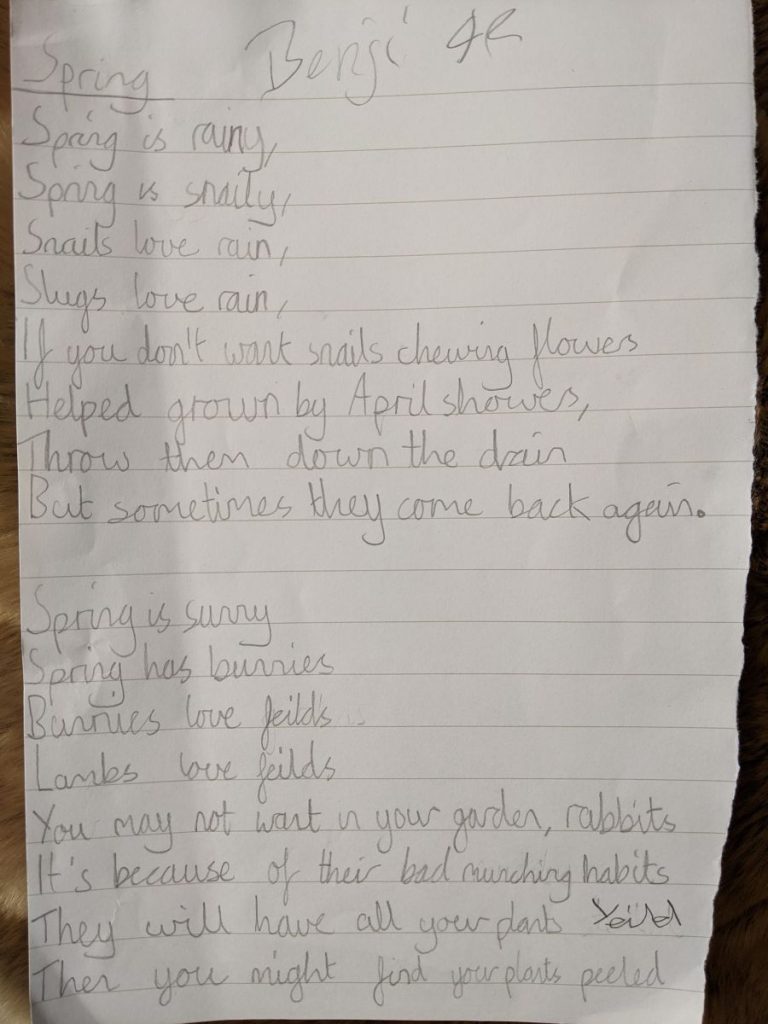 Spring Benji 4R
Spring is rainy,
Spring is snaily,
Snails love rain,
Slugs love rain,
If you don't want snails chewing flowers
Helped grown by April showes,
Throw them down the drain
But sometimes they come back again.
Spring is sunny
Spring has bunnies
Bunnies love feilds
Lambs love feilds
You may not want in your garden, rabbits
It's because of their bad munching habits
They will have all your plants
Then you might find your plants peeled